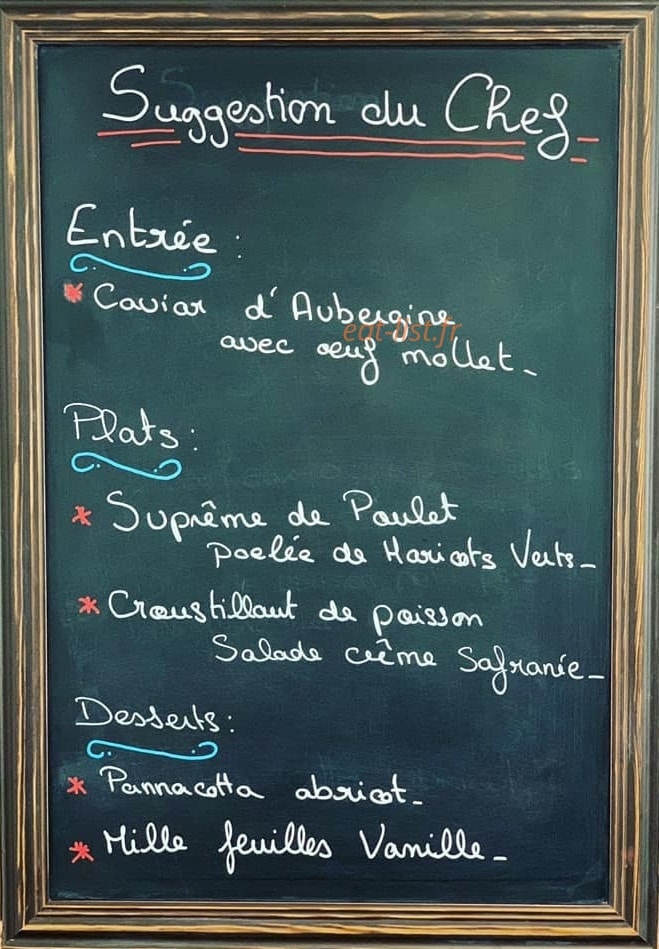 Suggestion du Chef
Entrée :
* Caviar d'Aubergine
eat-list.fr
avec œuf mollet.
Plats :
* Suprême de Poulet
poelée de Haricots Verts_
* Croustillant de poisson
Salade crème Safranée_
Desserts :
* Pannacotta abricot_
* Mille feuilles Vanille_